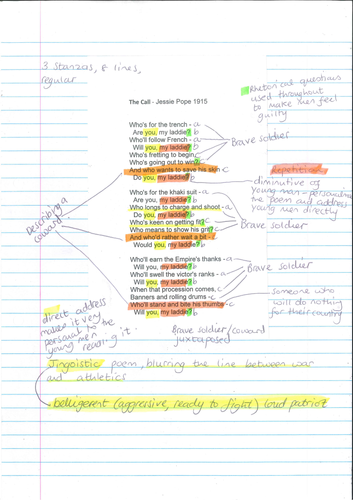 3 Stanzas, 8 lines,
regular
The Call - Jessie Pope 1915
Rhetorical questions
used throughout
to make men feel
guilty
Who's for the trench - a
Are you, my laddie? b
Who'll follow French - a
Will you, my laddie? b
Who's fretting to begin, c
Who's going out to win? c
And who wants to save his skin - c
Do you, my laddie? b
Brave soldier
Repetition
diminutive of
young man - persuading
the poem and address
young men directly
Who's for the khaki suit - a
Are you, my laddie? b
Who longs to charge and shoot - a
Do you, my laddie? b
Who's keen on getting fit, c
Who means to show his grit, c
And who'd rather wait a bit - c
Would you, my laddie? b
Brave soldier
Describing a
coward
Who'll earn the Empire's thanks - a
Will you, my laddie? b
Who'll swell the victor's ranks - a
Will you, my laddie? b
When that procession comes, c
Banners and rolling drums - c
Who'll stand and bite his thumbs - c
Will you, my laddie? b
Brave soldier
someone who
will do nothing
for their country
direct address
makes it very
personal to the
young men reading it.
Brave soldier/coward
juxtaposed
Jingoistic poem, blurring the line between war
and athletics
belligerent (aggressive, ready to fight) loud patriot